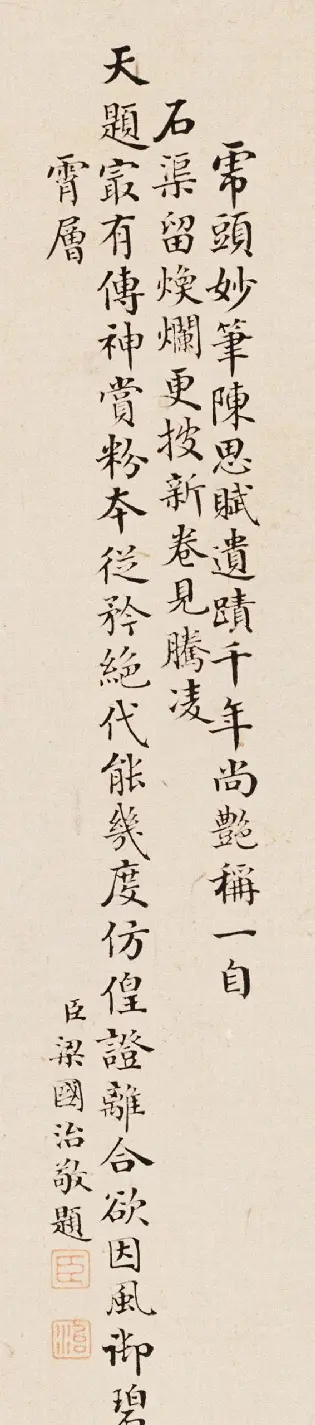 乕頭妙筆陳思賦遺蹟千年尚艷稱一自
石渠留煥爛更披新卷見騰凌
天題㝡有傳神賞粉夲從矜絶代能幾度仿偟證離合欲因風御碧
霄層
臣梁國治敬題
臣
治